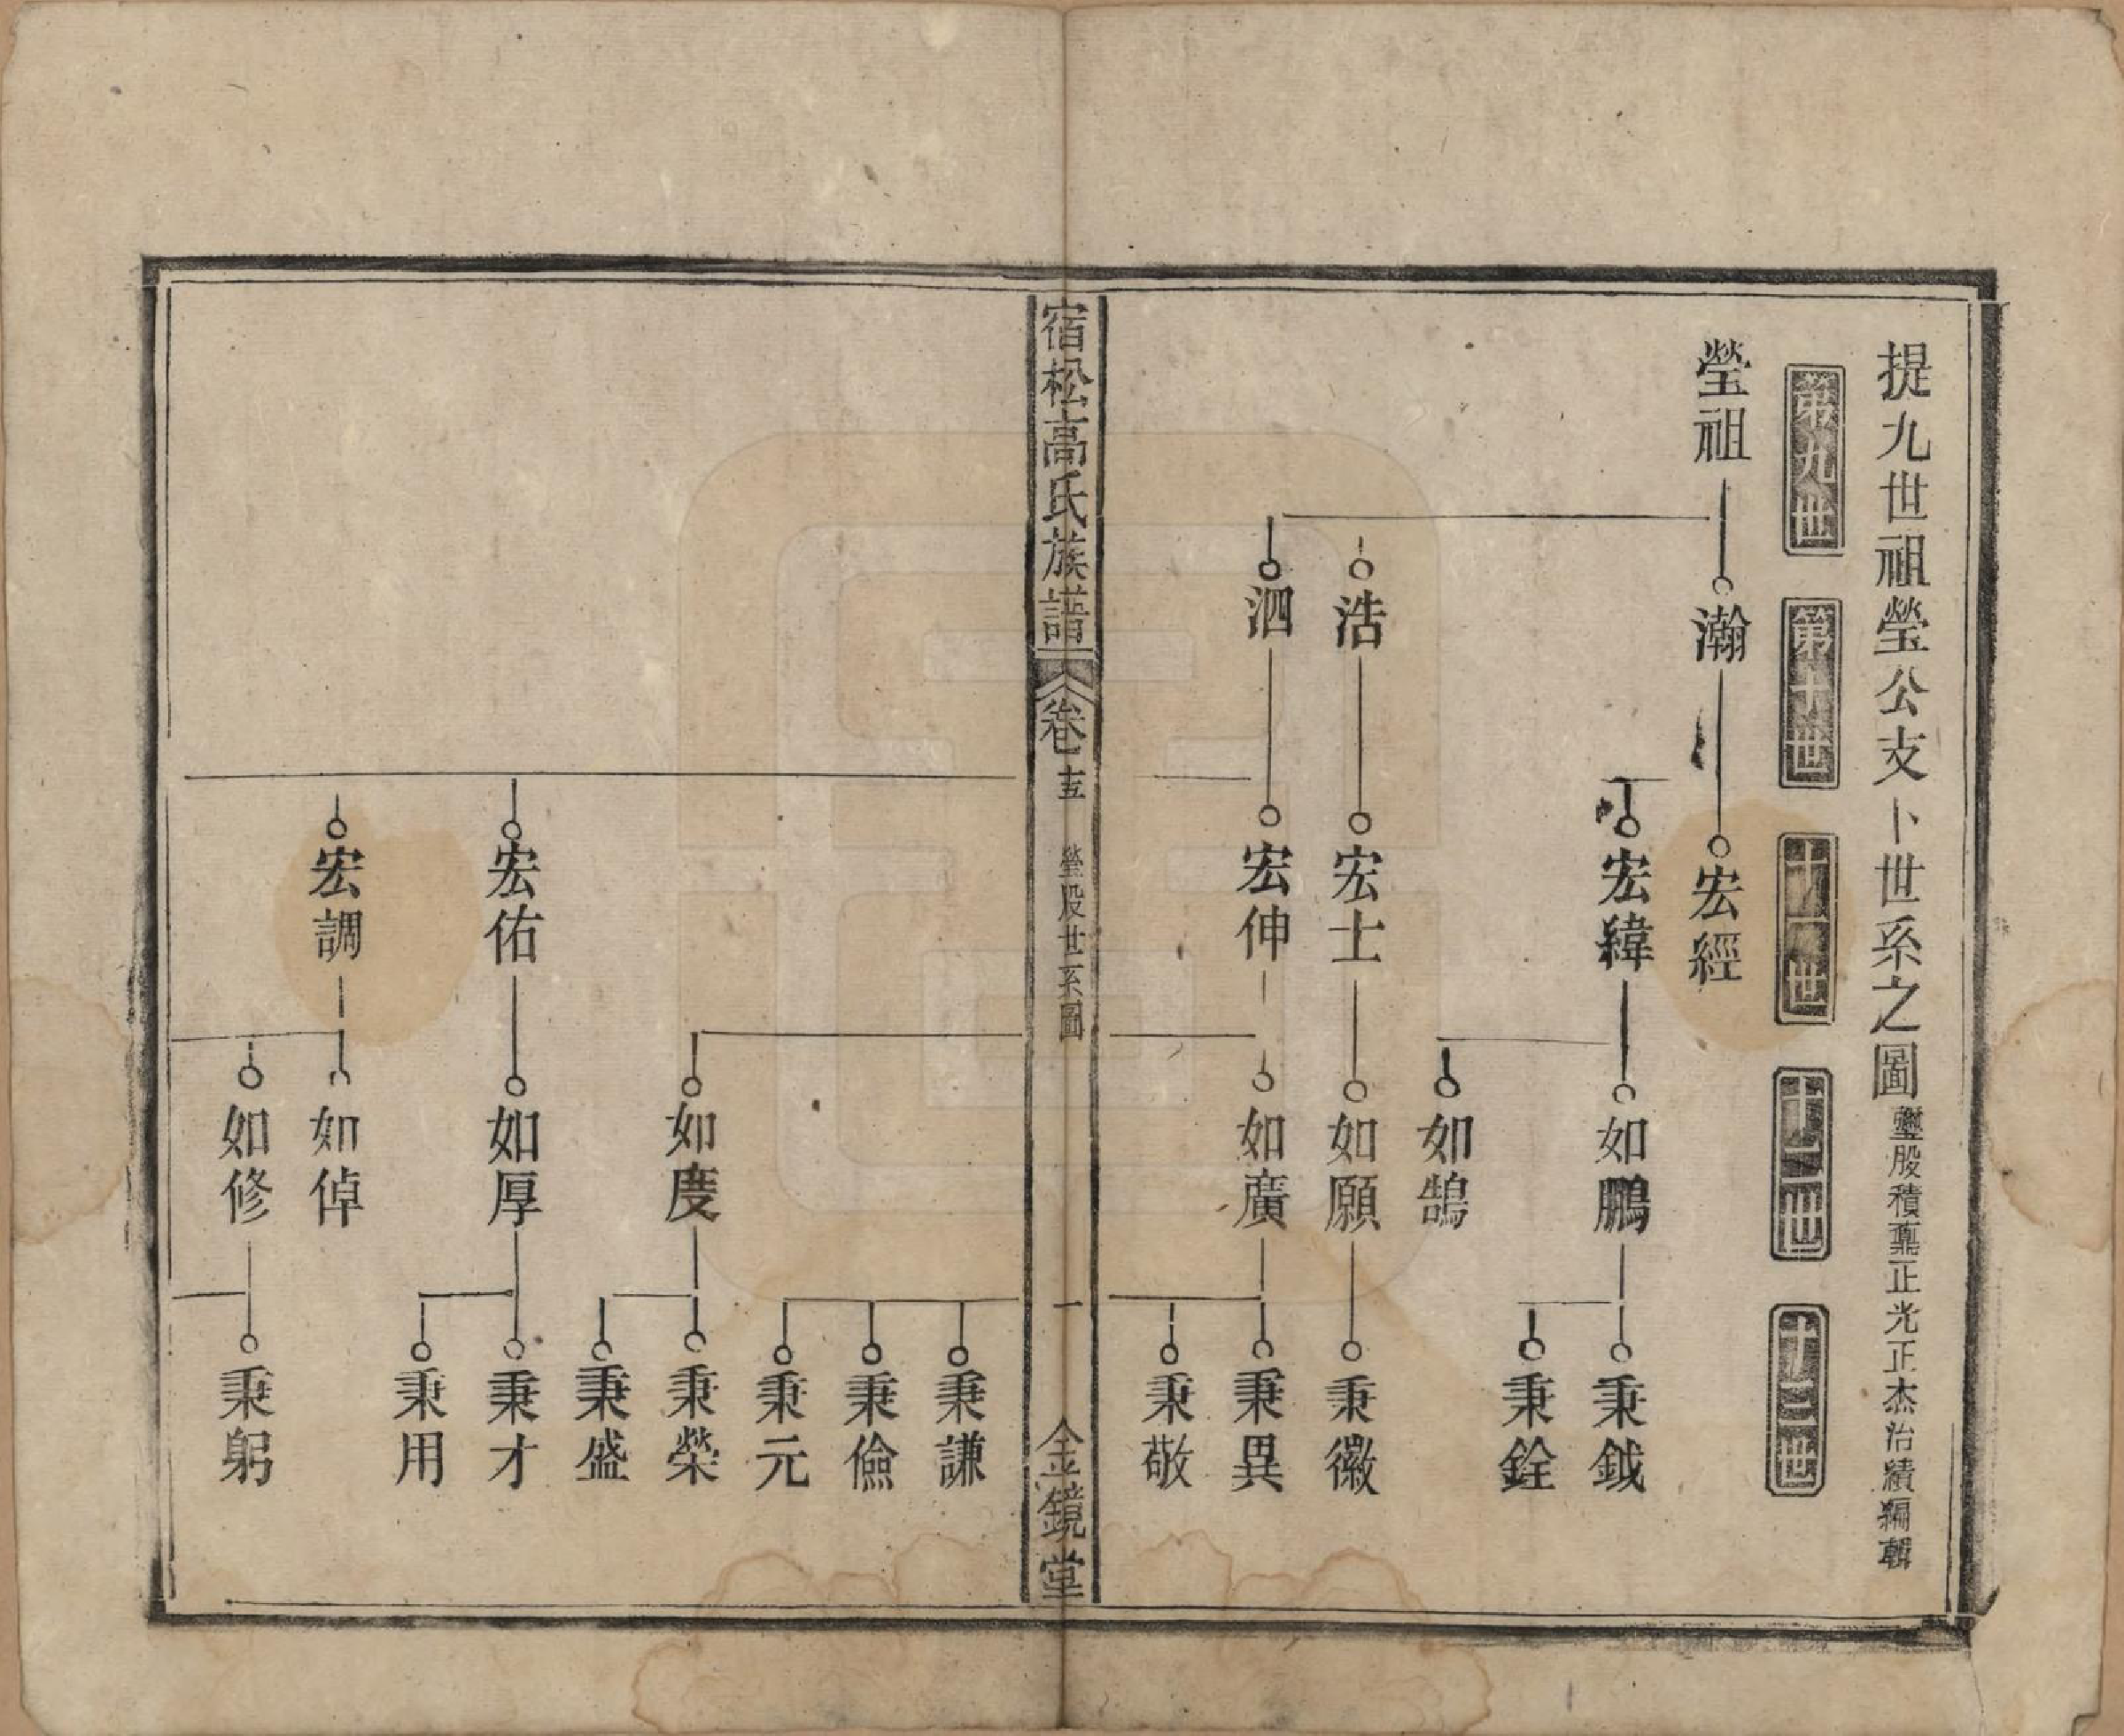 提九世祖瑩公支卜世系之圖
璽股積藁正光正杰治績編輯
第九世
第十世
十一世
十二世
十三世
瑩祖
瀚
宏經
宏緯
如鵬
秉鉞
秉銓
如鵠
浩
宏士
如願
秉徽
泗
宏伸
如廣
秉異
秉敬
宿松高氏族譜
卷
瑩股世系圖
一
金鏡堂
秉謙
秉儉
秉元
如度
秉榮
秉盛
宏佑
如厚
秉才
秉用
宏調
如倬
如修
秉躬